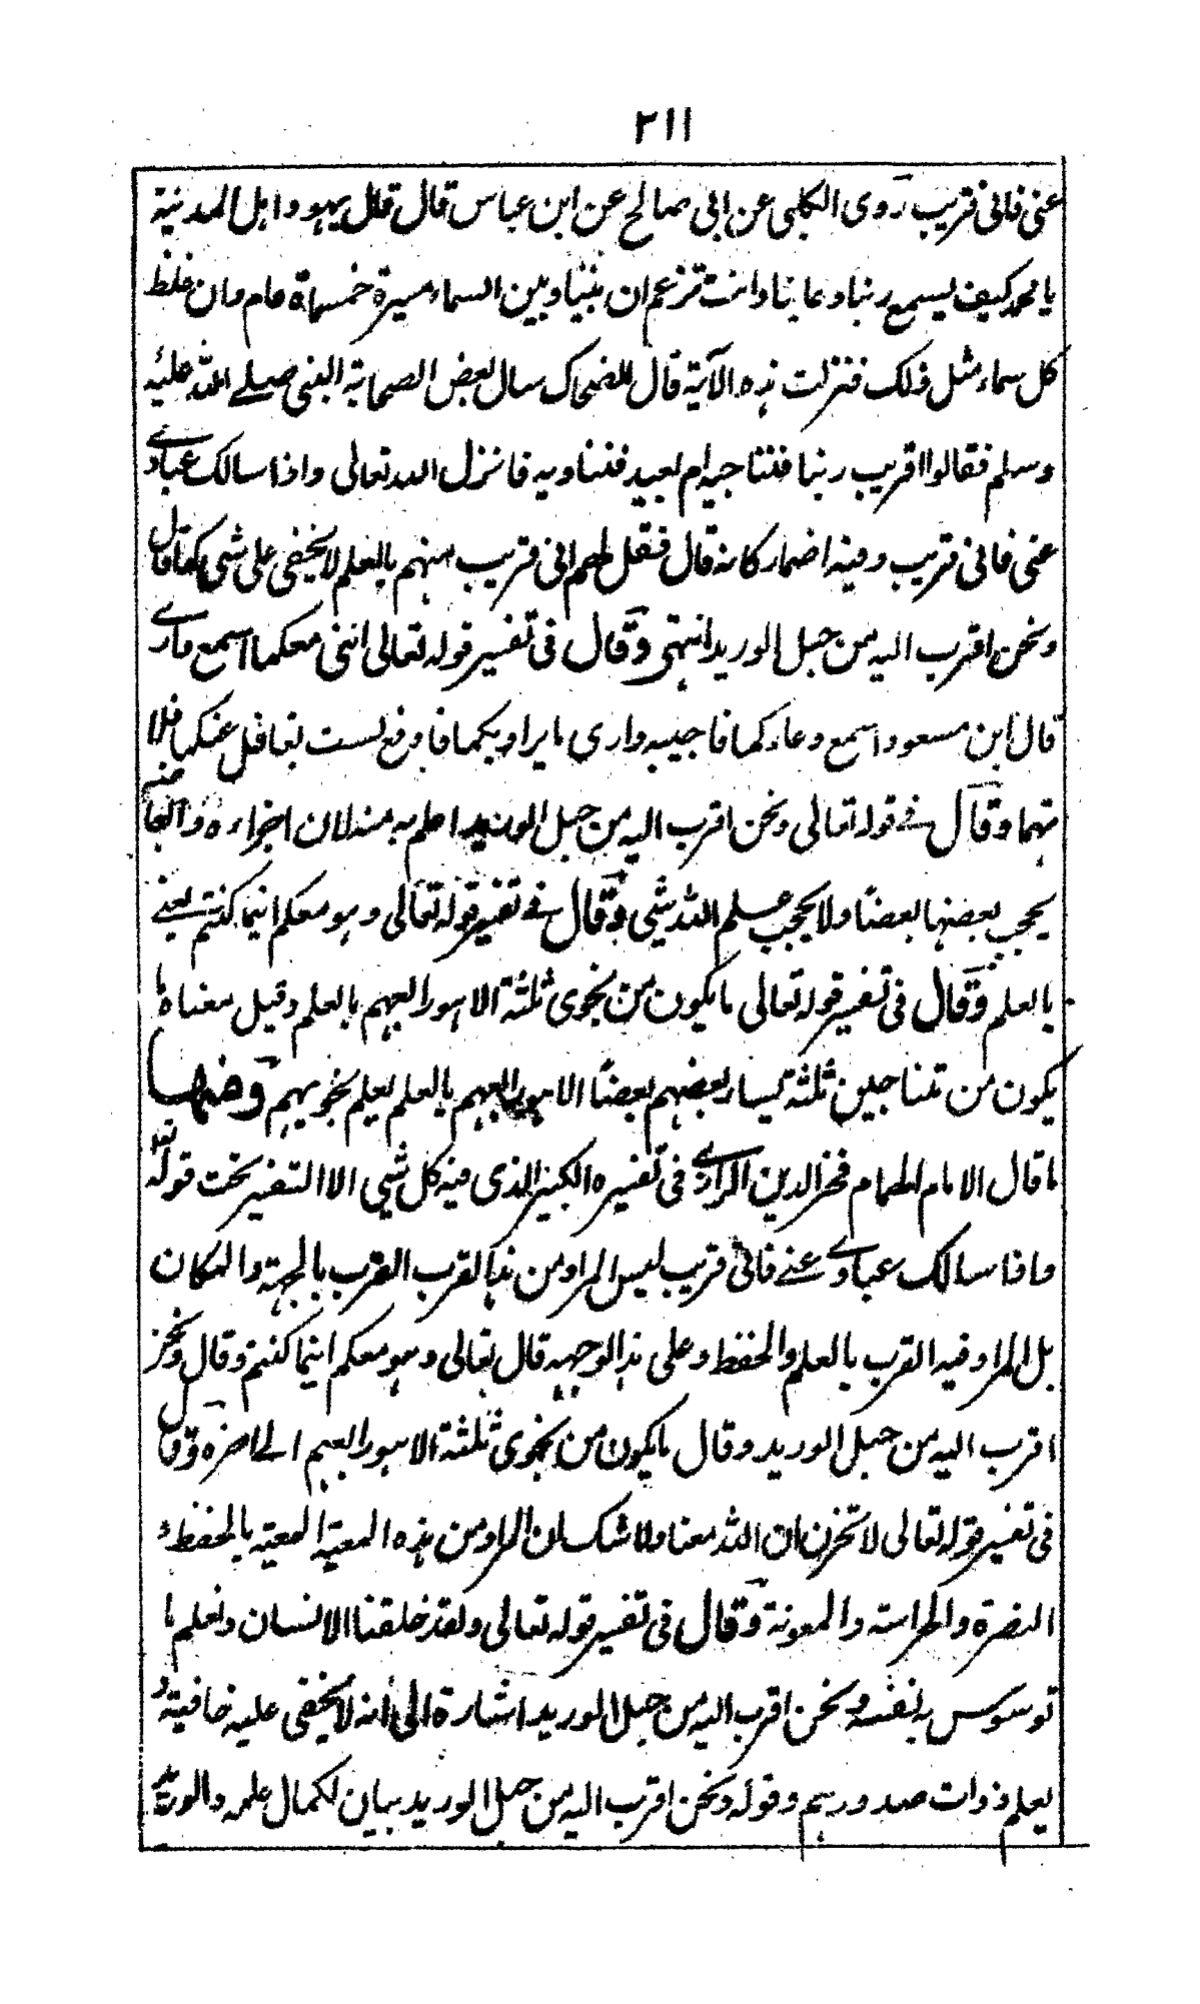 ٢١١
عنى فانى قريب روى الكلبى عن ابى صالح عن ابن عباس قال قال يهود اهل المدينة
يا محمد كيف يسمع ربنا دعاءنا وانت تزعم ان بيننا وبين السماء مسيرة خمسمأة عام وان غلظ
كل سماء مثل ذلك فنزلت هذه الآية قال الضحاك سال بعض الصحابة النبى صلى الله عليه
وسلم فقالوا اقريب ربنا فنناجيه ام بعيد فنناديه فانزل الله تعالى واذا سالك عبادى
عنى فانى قريب وفيه اضمار كانه قال فقل لهم انى قريب منهم بالعلم لا يخفى على شئ كما قال
ونحن اقرب اليه من حبل الوريد انتهى وقال فى تفسير قوله تعالى اننى معكما اسمع وارى
قال ابن مسعود اسمع دعاءكما فاجيبه وارى ما يراد بكما فادفع لست بغافل عنكما فلا
تهتما وقال فى قوله تعالى ونحن اقرب اليه من حبل الوريد اعلم به منه لان اجزاءه وابعاضه
يحجب بعضها بعضا ولا يحجب علم الله شئ وقال فى تفسير قوله تعالى وهو معكم اينما كنتم يعنى
بالعلم وقال فى تفسير قوله تعالى ما يكون من نجوى ثلثة الا هو رابعهم بالعلم وقيل معناه ما
يكون من متناجين ثلثة يسار بعضهم بعضا الا هو رابعهم بالعلم يعلم نجويهم ومنها
ما قال الامام الهمام فخر الدين الرازى فى تفسيره الكبير الذى فيه كل شئ الا التفسير تحت قوله تعالى
واذا سالك عبادى عنى فانى قريب ليس المراد من هذا القرب القرب بالجهة والمكان
بل المراد فيه القرب بالعلم والحفظ وعلى هذا الوجه قال تعالى وهو معكم اينما كنتم وقال ونحن
اقرب اليه من حبل الوريد وقال ما يكون من نجوى ثلثة الا هو رابعهم الى اخره وقال
فى تفسير قوله تعالى لا تحزن ان الله معنا ولا شك ان المراد من هذه المعية المعية بالحفظ و
النصرة والحراسة والمعونة وقال فى تفسير قوله تعالى ولقد خلقنا الانسان ونعلم ما
توسوس به نفسه ونحن اقرب اليه من حبل الوريد اشارة الى انه لا يخفى عليه خافية و
يعلم ذوات صدورهم وقوله ونحن اقرب اليه من حبل الوريد بيان لكمال علمه والوريد